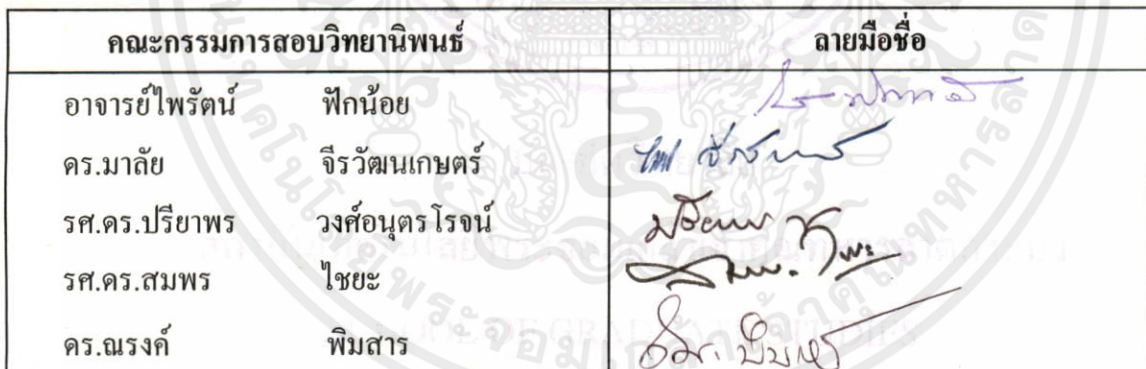 คณะกรรมการสอบวิทยานิพนธ์ ลายมือชื่อ
อาจารย์ไพรัตน์ ฟักน้อย
ดร.มาลัย จีรวัฒนเกษตร์
รศ.ดร.ปรียาพร วงศ์อนุตรโรจน์
รศ.ดร.สมพร ไชยะ
ดร.ณรงค์ พิมสาร